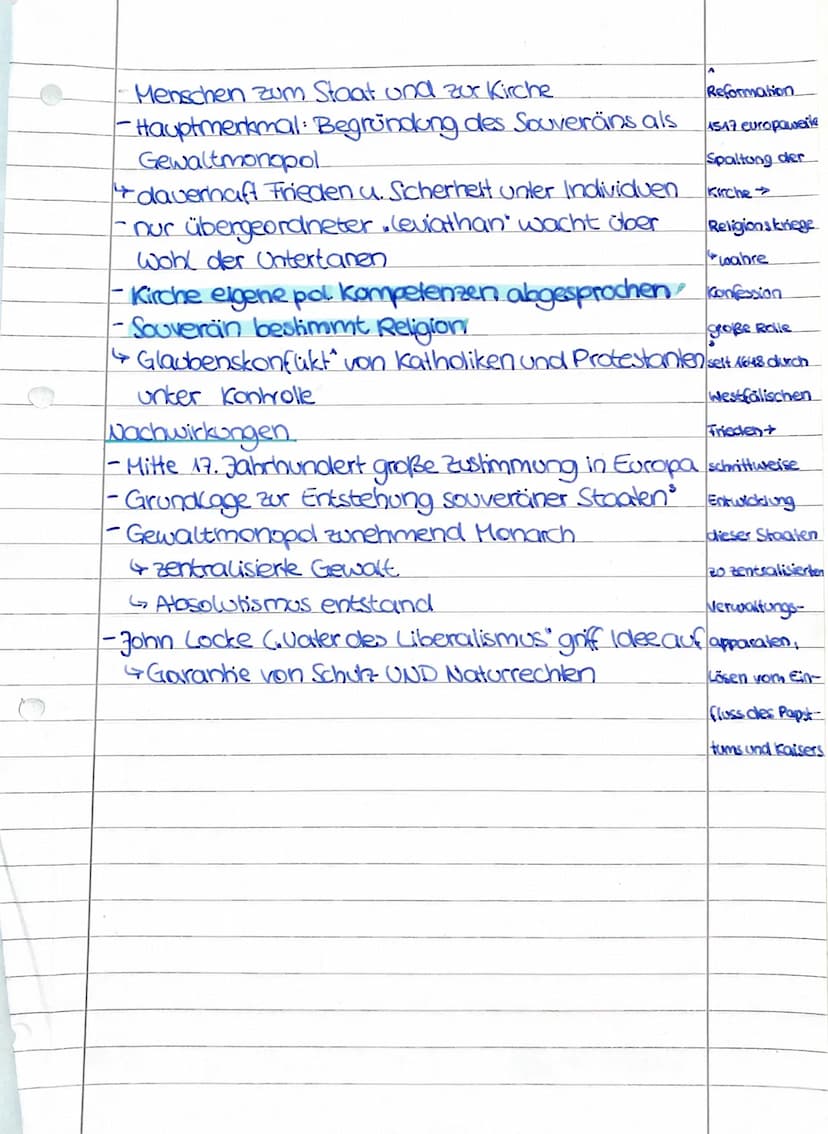 - Menschen zum Staat und zur Kirche
- Hauptmerkmal: Begründung des Souveräns als
Gewaltmonopol
↳ dauerhaft Frieden u. Sicherheit unter Individuen
- nur übergeordneter „Leviathan" wacht über
Wohl der Untertanen
- Kirche eigene pol. Kompetenzen abgesprochen
- Souverän bestimmt Religion
↳ Glaubenskonflikt^ von Katholiken und Protestanten
unter Kontrolle
Nachwirkungen
- Mitte 17. Jahrhundert große Zustimmung in Europa
- Grundlage zur Entstehung souveräner Staaten°
- Gewaltmonopol zunehmend Monarch
↳ zentralisierte Gewalt
↳ Absolutismus entstand
- John Locke („Vater des Liberalismus" griff Idee auf
↳ Garantie von Schutz UND Naturrechten
^
Reformation
1517 europaweite
Spaltung der
Kirche →
Religionskriege
↳ wahre
Konfession
große Rolle
° seit 1648 durch
Westfälischen
Frieden +
schrittweise
Entwicklung
dieser Staaten
zu zentralisierten
Verwaltungs-
apparaten,
Lösen vom Ein-
fluss des Papst-
tums und Kaisers